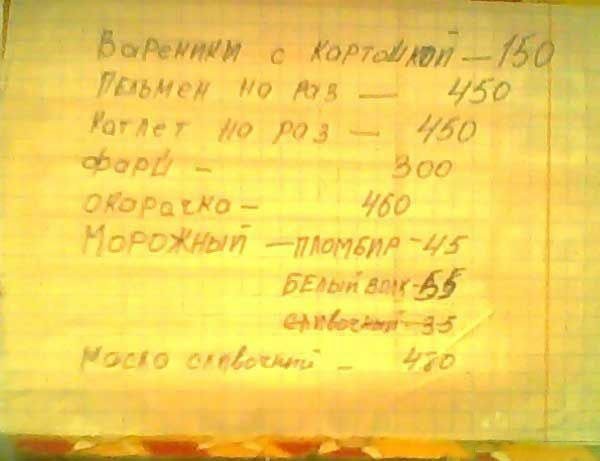 Вареники с картошкой — 150
Пельмен на раз — 450
Катлет на раз — 450
Фарш - 300
окорачка - 460
Морожный — пломбир - 45
белый волк - 55
сливочный - 35
масло сливочний - 480